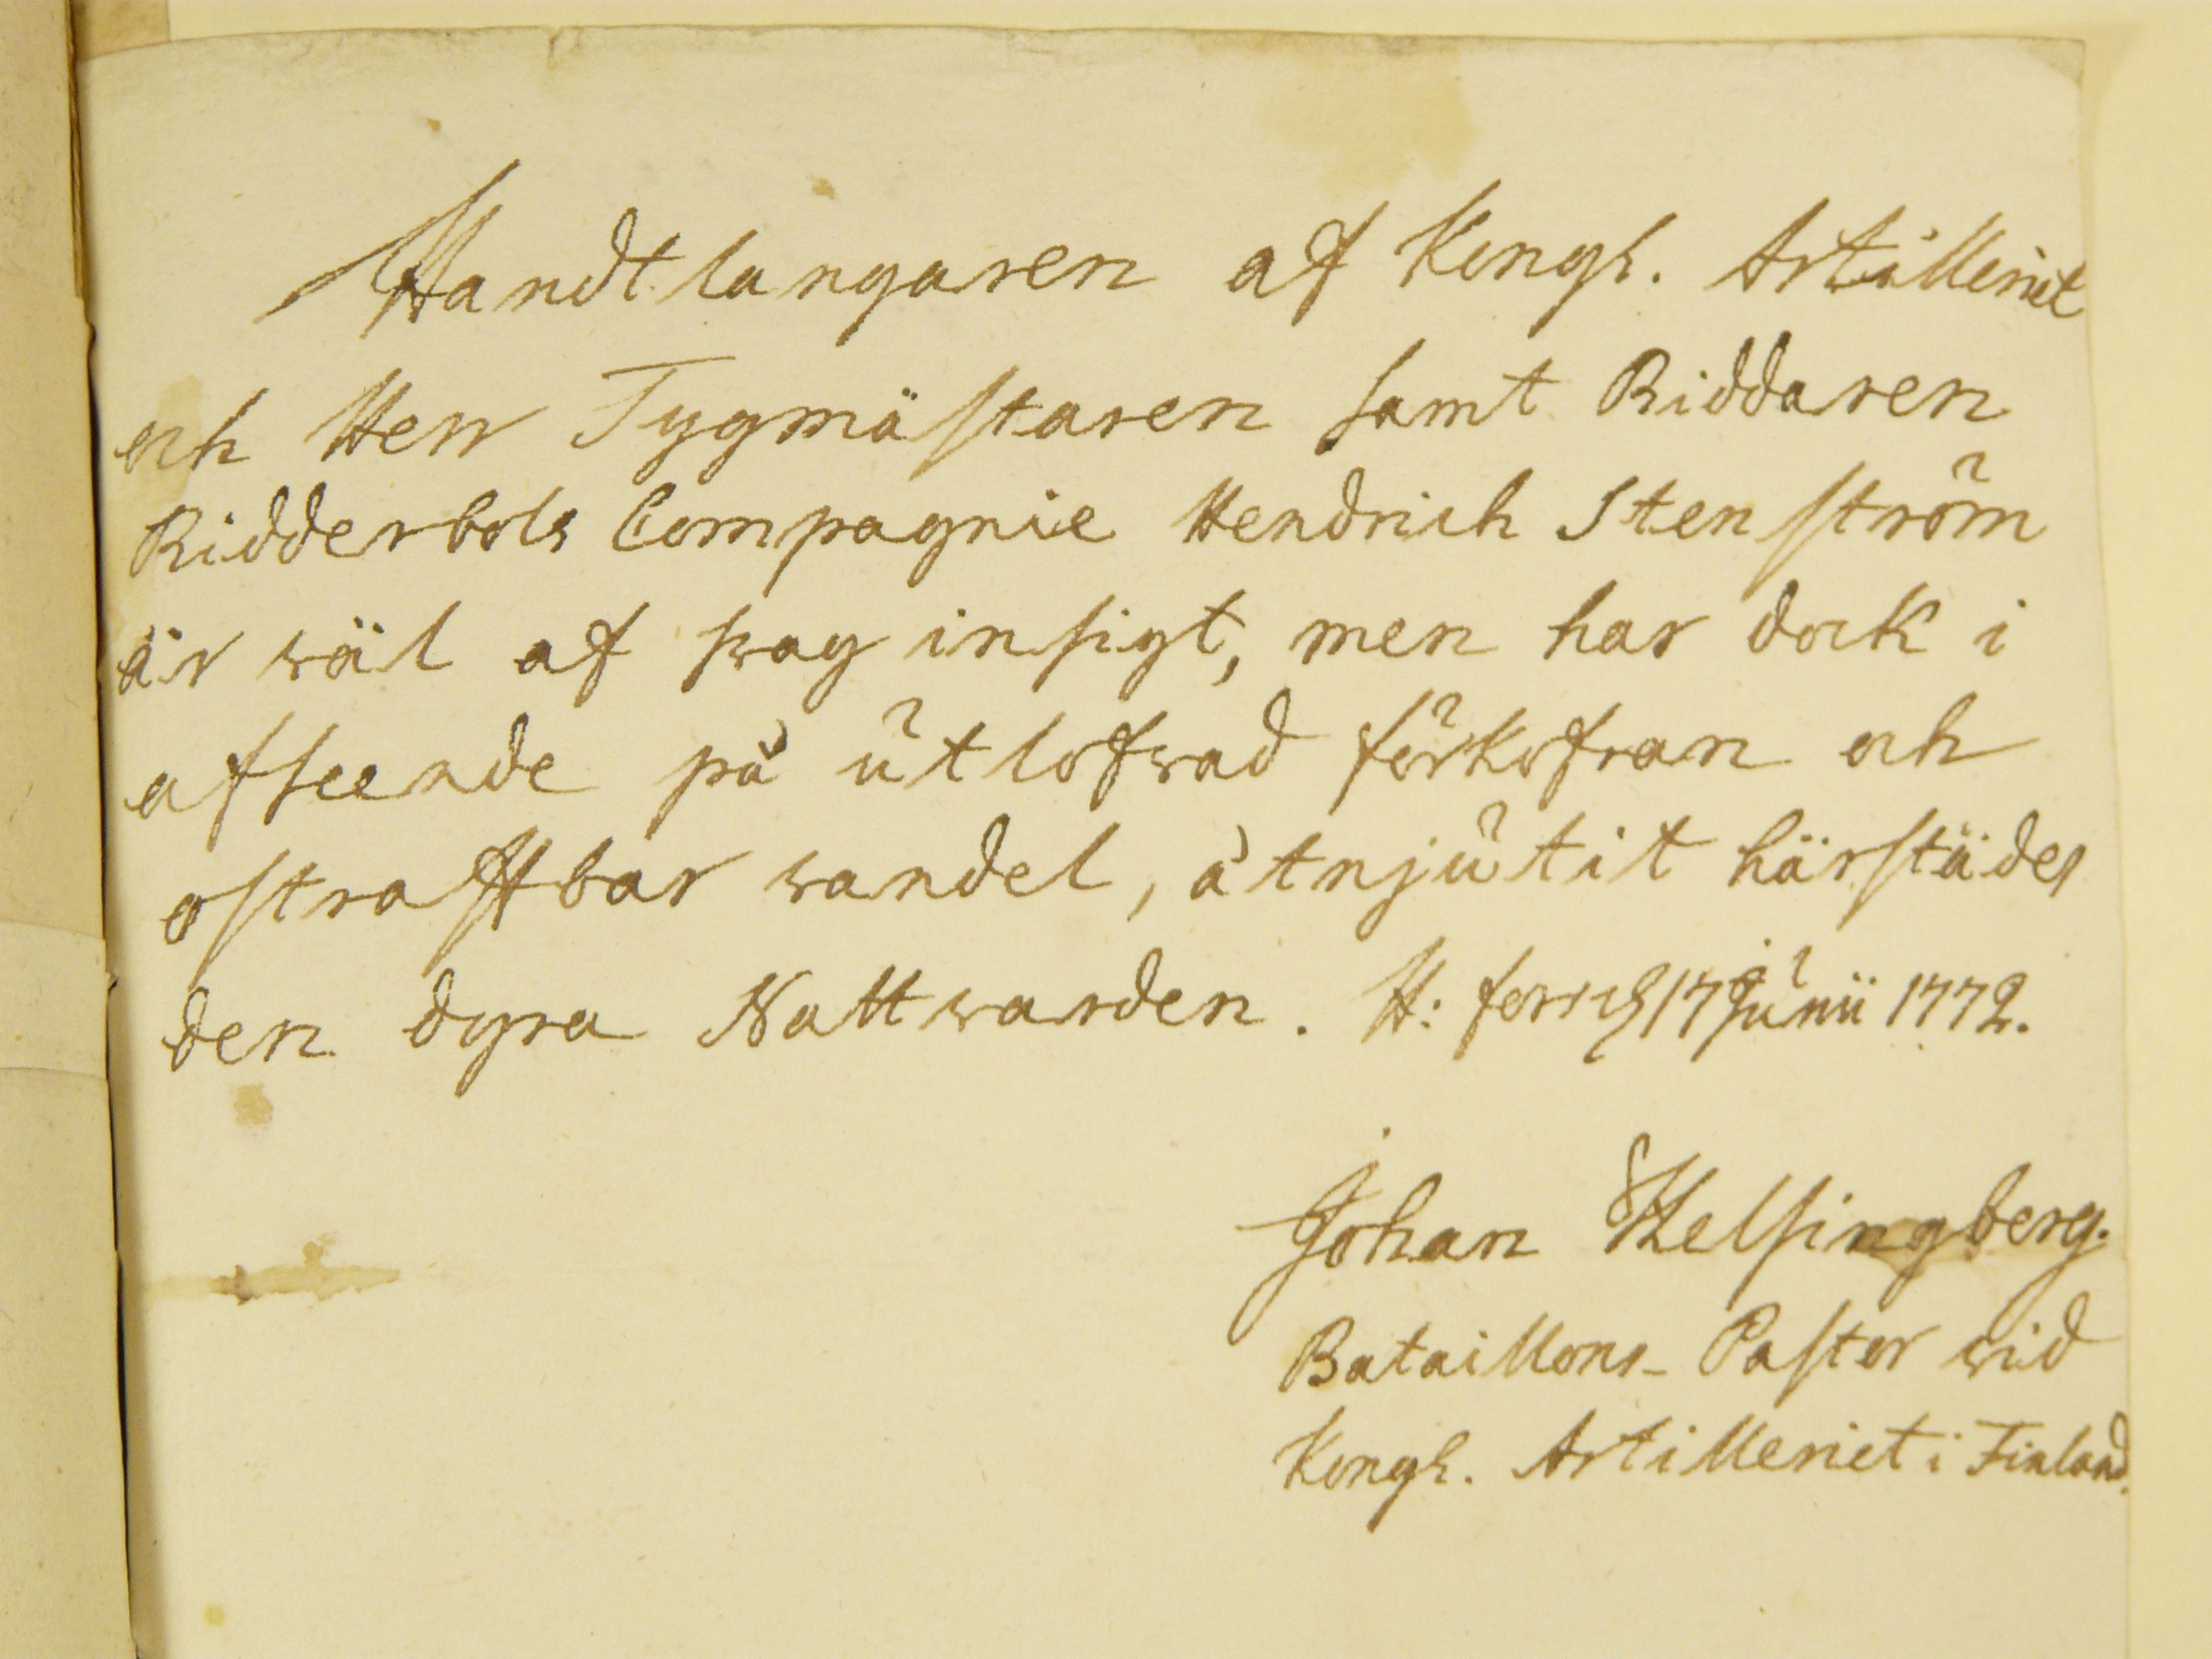 Handtlangaren af Kongl. Artilleriet
och Herr Tygmästaren samt Riddaren
Ridderbols Compagnie Hendrich Stenström
är wäl af swag insigt, men har dock i
afseende på utlofwad förkofran och
ostraffbar wandel, åtnjutit härstädes
den dyra Nattwarden. H: fors 17 Junii 1772.
Johan Helsingberg.
Bataillons-Pastor wid
Kongl. Artilleriet i Finland.